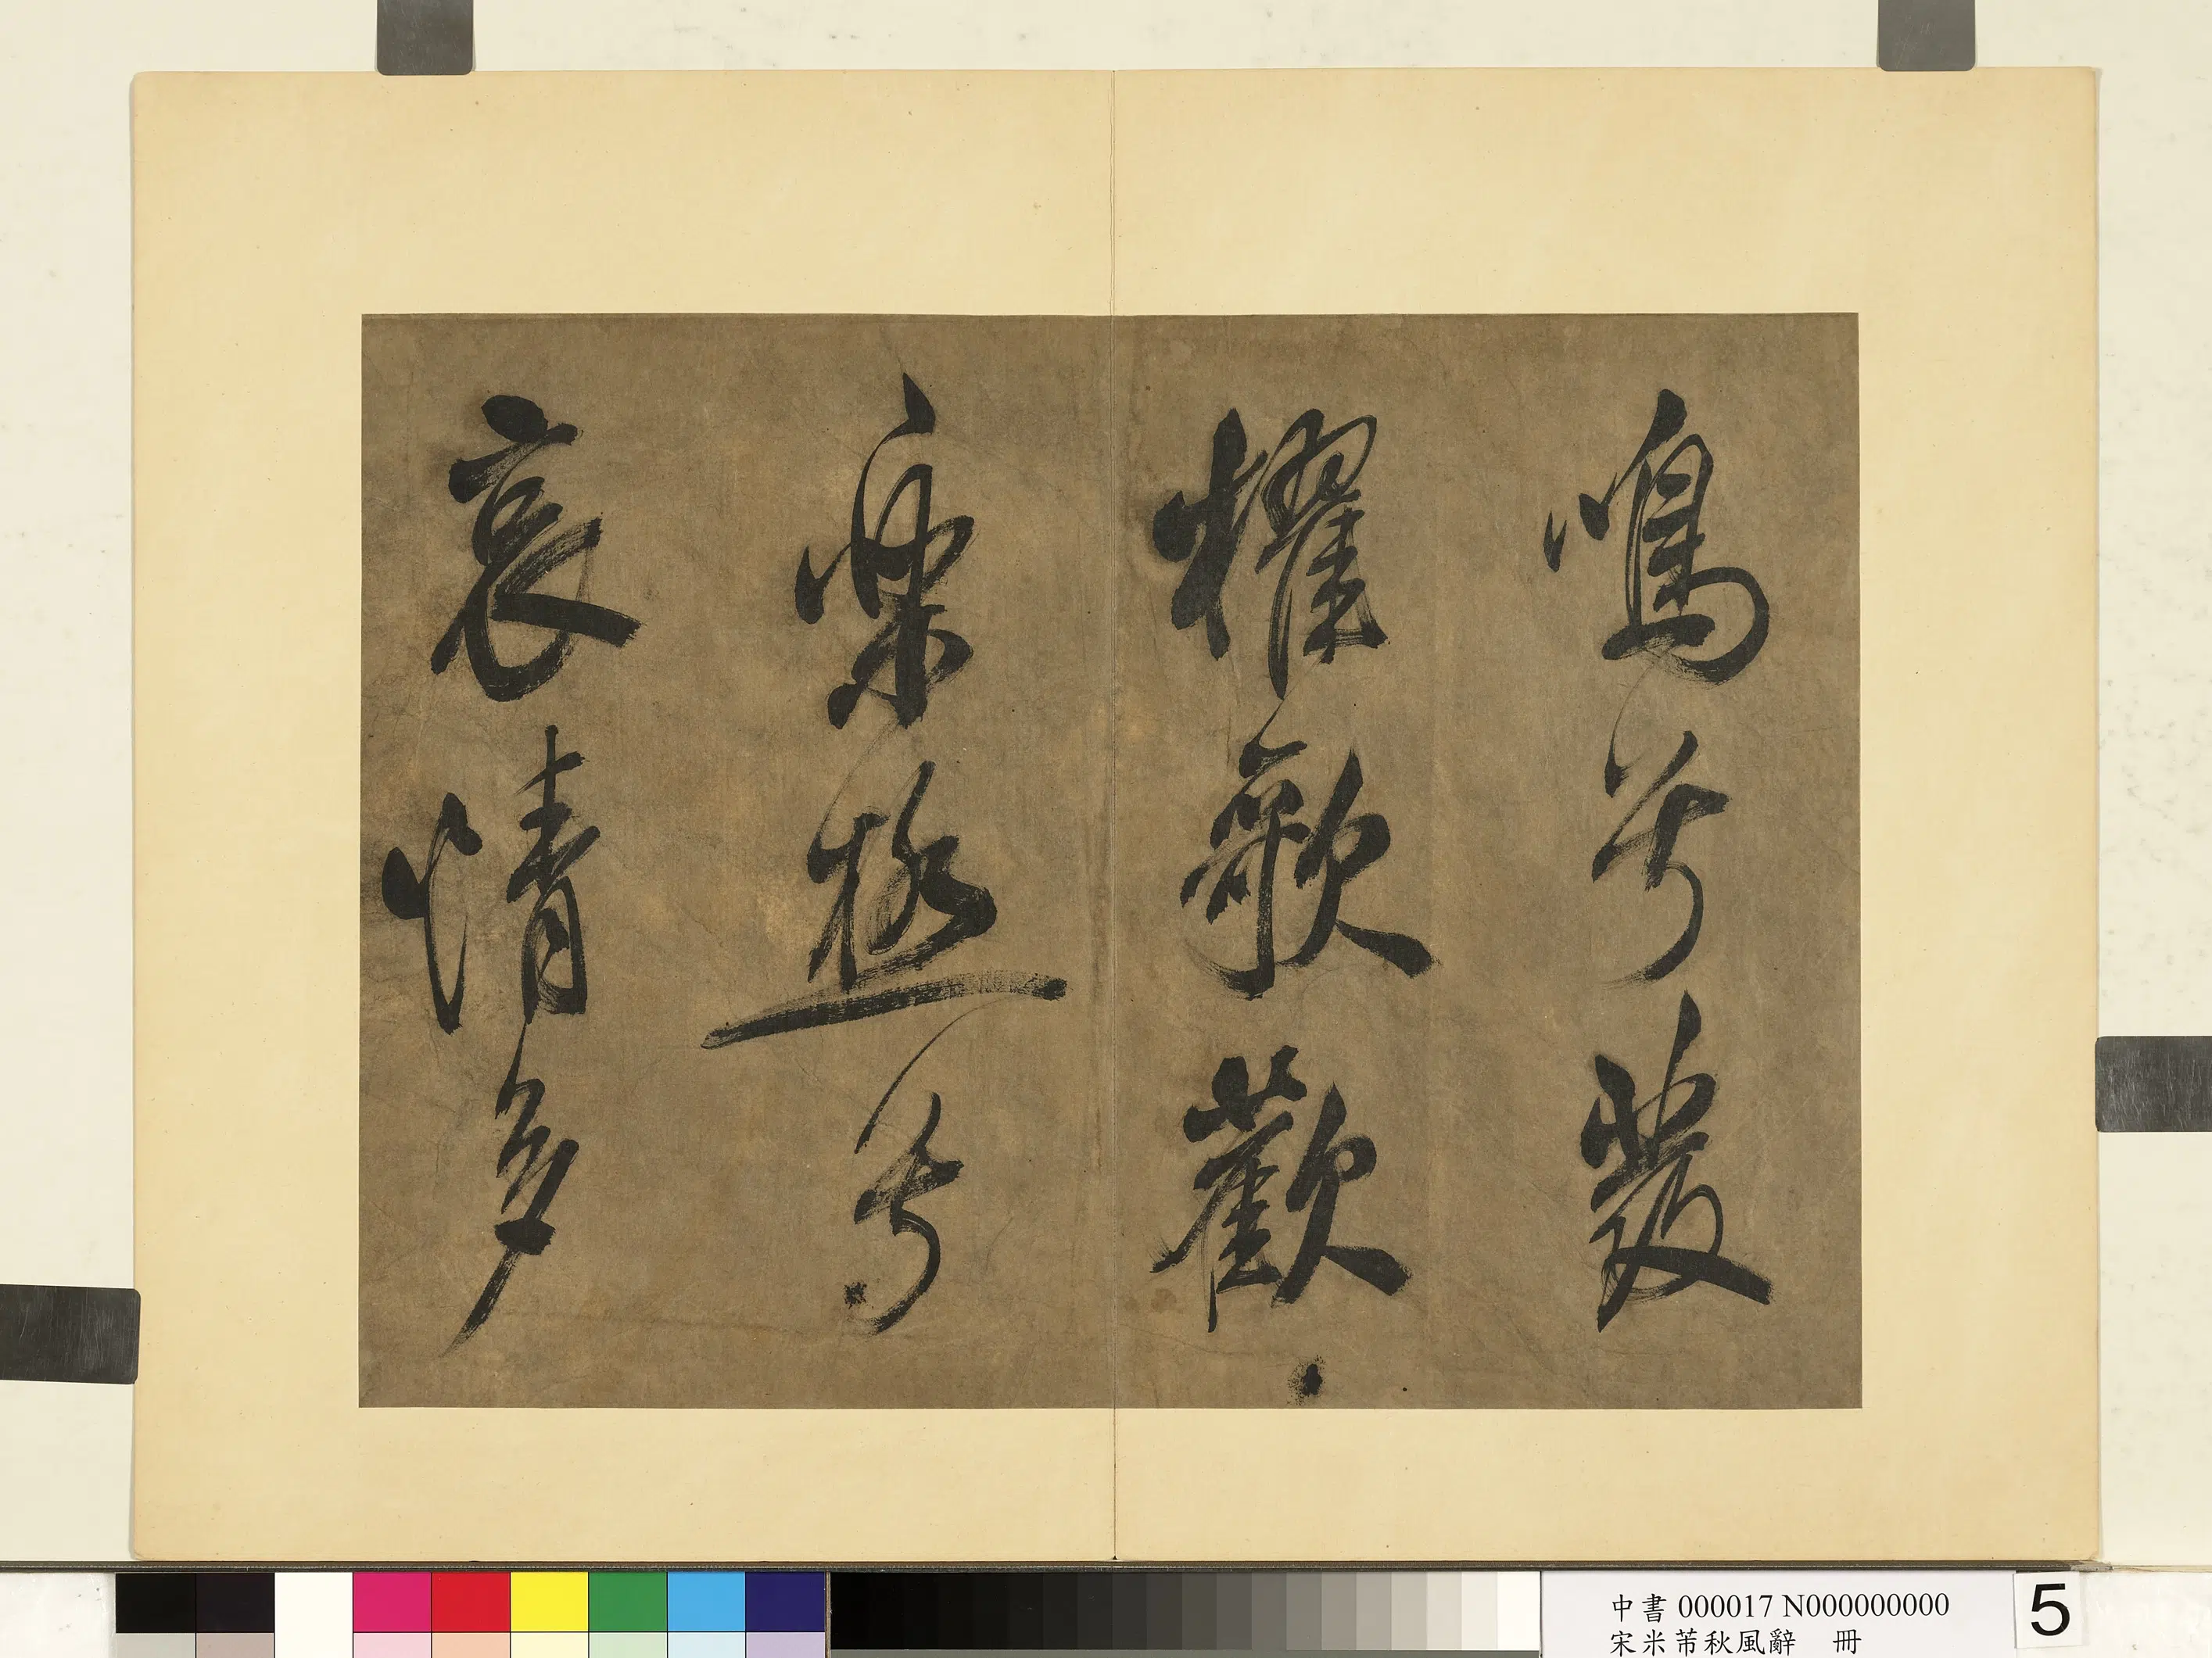 鳴兮發
櫂歌歡
樂極兮
哀情多
中書 000017 N000000000
宋米芾秋風辭 冊
5